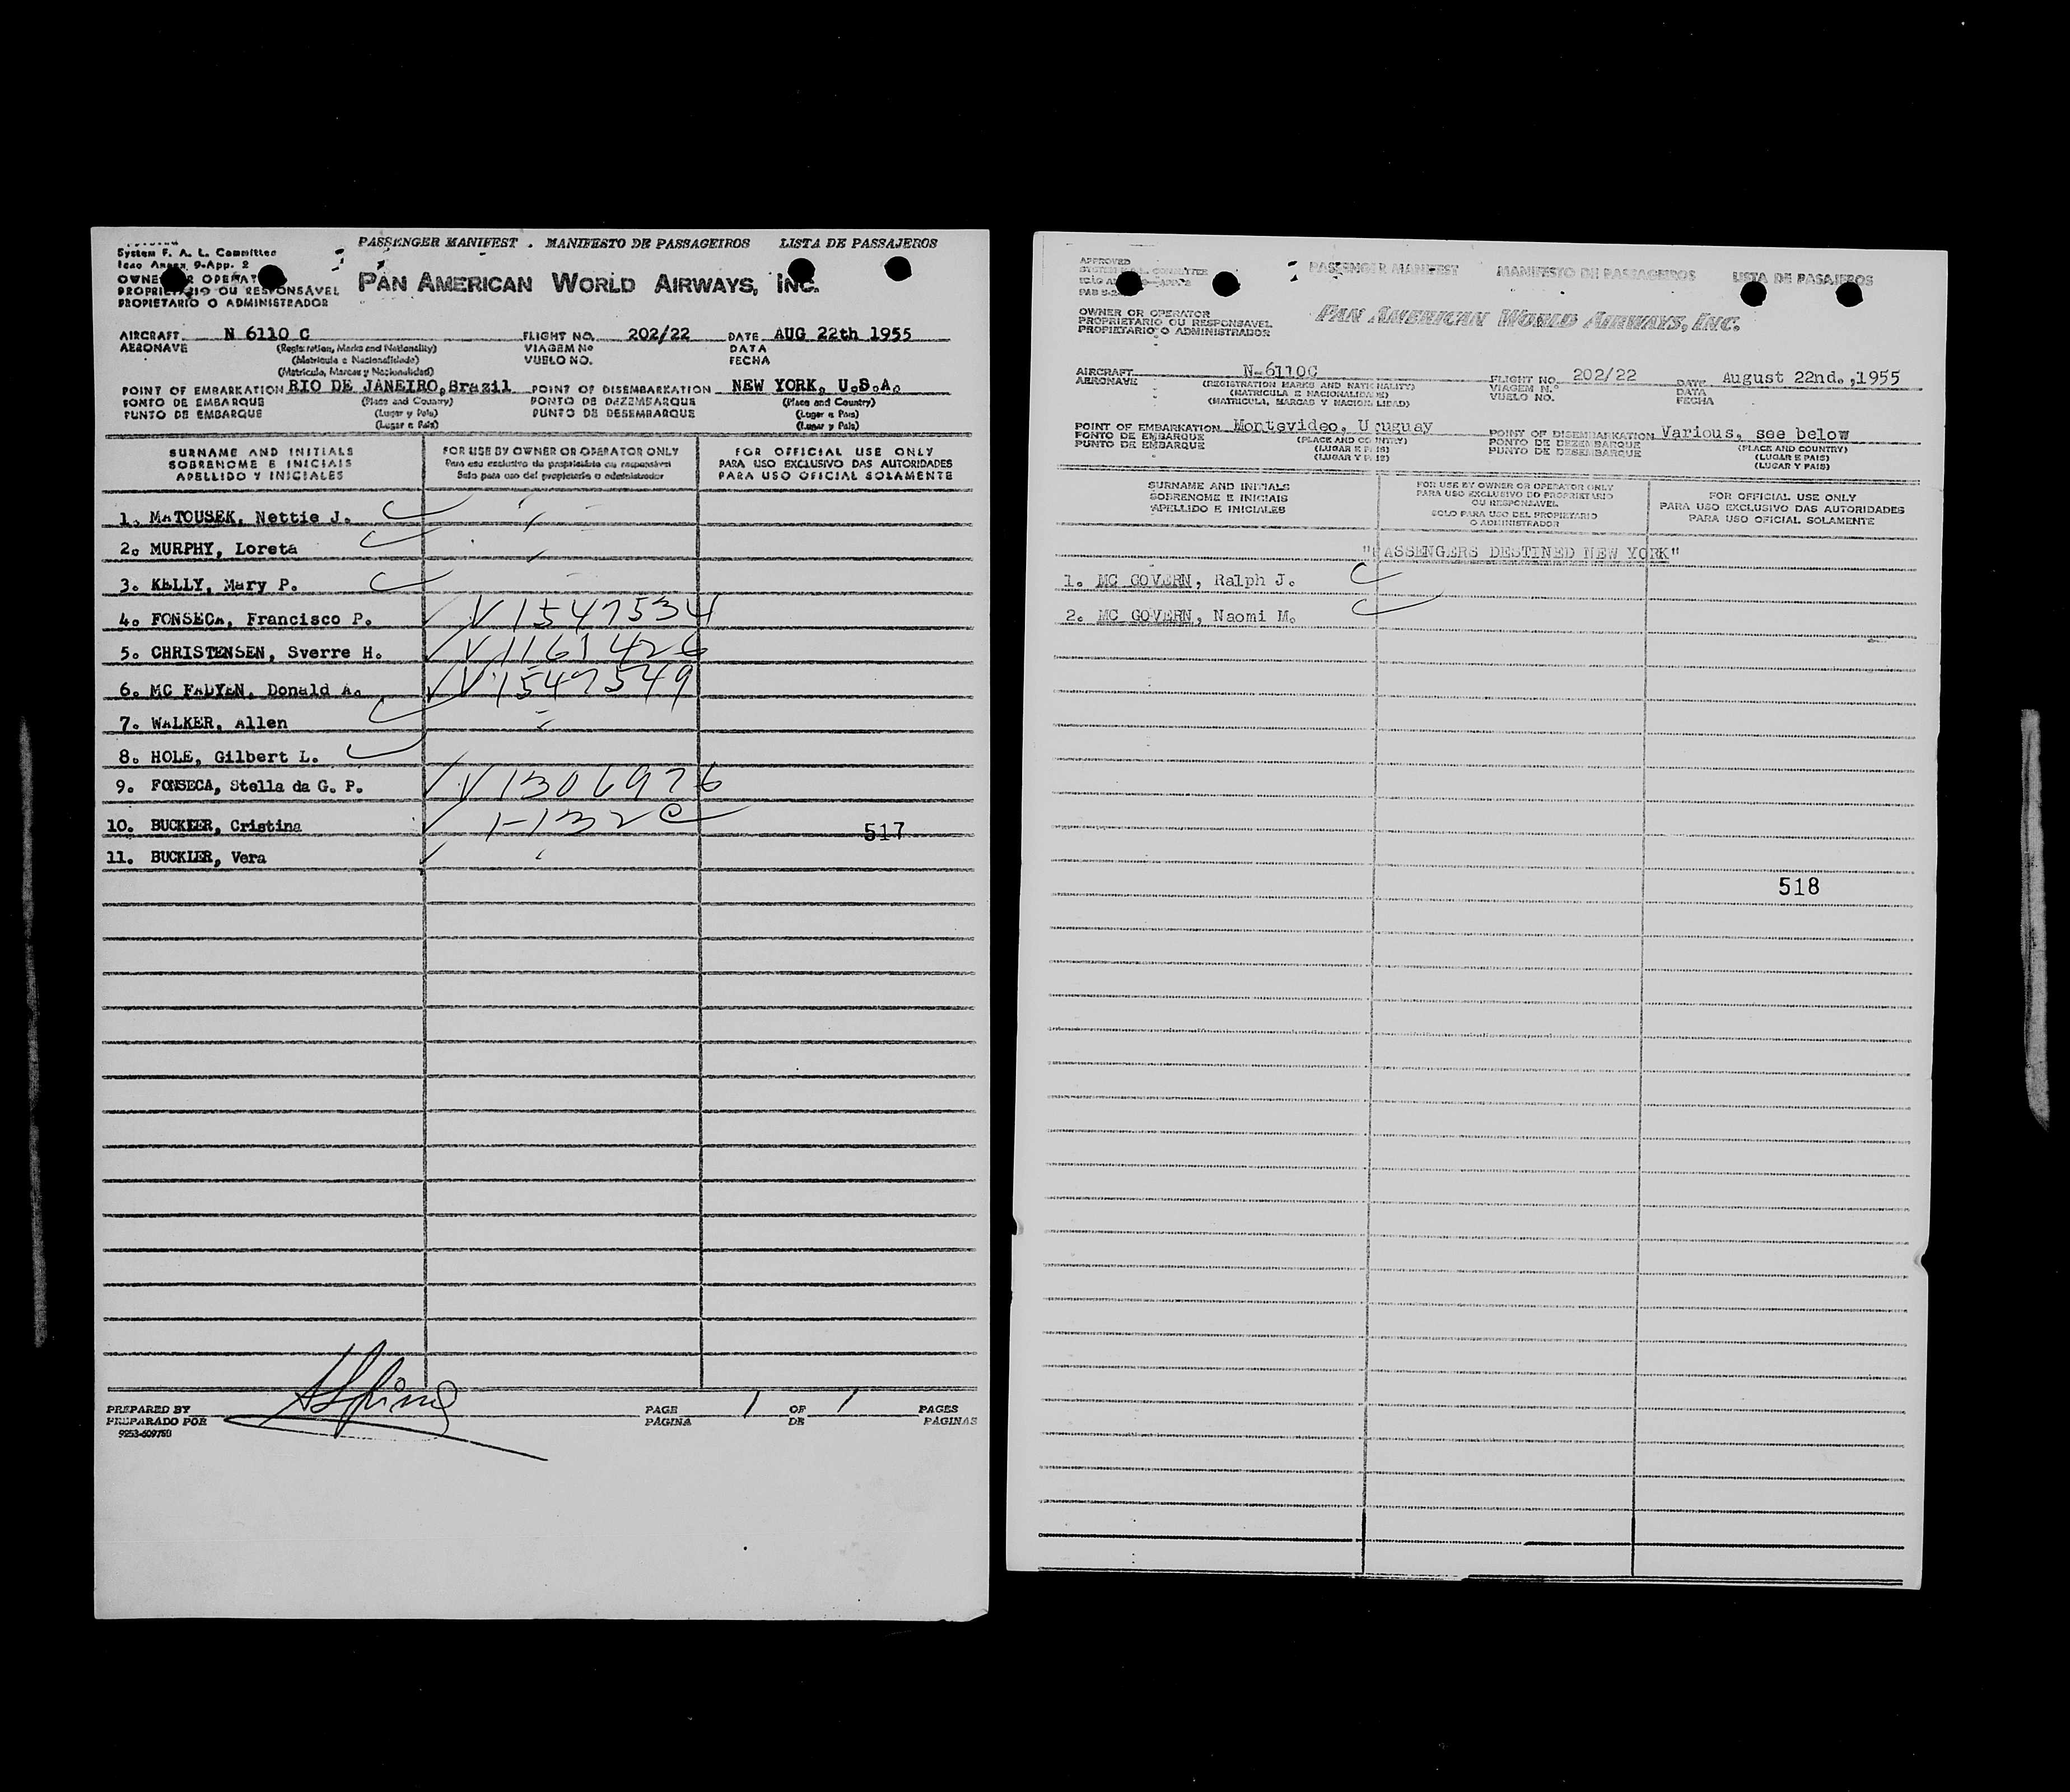 System F. A. L. Committee
Icao Annex 9-App. 2
PROPIETARIO O ADMINISTRADOR
PASSENGER MANIFEST . MANIFESTO DE PASSAGEIROS LISTA DE PASSAJEROS
PAN AMERICAN WORLD AIRWAYS, INC.
AIRCRAFT N 6110 C FLIGHT NO. 202/22 DATE AUG 22th 1955
AERONAVE (Registration, Marks and Nationality) VIAGEM No DATA
(Matricula e Nacionalidade) VUELO NO. FECHA
(Matricula, Marcas y Nacionalidad)
POINT OF EMBARKATION RIO DE JANEIRO, Brazil POINT OF DISEMBARKATION NEW YORK, U.S.A.
PONTO DE EMBARQUE (Place and Country) PONTO DE DEZEMBARQUE (Place and Country)
PUNTO DE EMBARQUE (Lugar y Pais) PUNTO DE DESEMBARQUE (Lugar e Pais)
(Lugar e Pais) (Lugar y Pais)
SURNAME AND INITIALS FOR USE BY OWNER OR OPERATOR ONLY FOR OFFICIAL USE ONLY
SOBRENOME E INICIAIS Para uso exclusivo do proprietario ou responsável PARA USO EXCLUSIVO DAS AUTORIDADES
APELLIDO Y INICIALES Solo para uso del propietario o administrador PARA USO OFICIAL SOLAMENTE
1. MATOUSEK, Nettie J.
2. MURPHY, Loreta
3. KELLY, Mary P.
4. FONSECA, Francisco P. V 1547534
5. CHRISTENSEN, Sverre H. V 1161426
6. MC FADYEN, Donald A. V 1547549
7. WALKER, Allen
8. HOLE, Gilbert L.
9. FONSECA, Stella da G. P. V 1306976
10. BUCKLER, Cristina 1-132 517
11. BUCKLER, Vera
PREPARED BY PAGE 1 OF 1 PAGES
PREPARADO POR PÁGINA DE PÁGINAS
9253-609750
APPROVED
PASSENGER MANIFEST MANIFESTO DE PASSAGEIROS LISTA DE PASAJEROS
OWNER OR OPERATOR
PROPRIETARIO OU RESPONSAVEL
PROPIETARIO O ADMINISTRADOR
PAN AMERICAN WORLD AIRWAYS, INC.
AIRCRAFT N-6110C FLIGHT NO. 202/22 DATE August 22nd.,1955
AERONAVE (REGISTRATION MARKS AND NATIONALITY) VIAGEM N.º DATA
(MATRICULA E NACIONALIDADE) VUELO NO. FECHA
(MATRICULA, MARCAS Y NACIONALIDAD)
POINT OF EMBARKATION Montevideo, Uruguay POINT OF DISEMBARKATION Various, see below
PONTO DE EMBARQUE (PLACE AND COUNTRY) PONTO DE DEZEMBARQUE (PLACE AND COUNTRY)
PUNTO DE EMBARQUE (LUGAR E PAIS) PUNTO DE DESEMBARQUE (LUGAR E PAIS)
(LUGAR Y PAIS) (LUGAR Y PAIS)
SURNAME AND INITIALS FOR USE BY OWNER OR OPERATOR ONLY FOR OFFICIAL USE ONLY
SOBRENOME E INICIAIS PARA USO EXCLUSIVO DO PROPRIETARIO OU RESPONSAVEL PARA USO EXCLUSIVO DAS AUTORIDADES
APELLIDO E INICIALES SOLO PARA USO DEL PROPIETARIO O ADMINISTRADOR PARA USO OFICIAL SOLAMENTE
"PASSENGERS DESTINED NEW YORK"
1. MC GOVERN, Ralph J.
2. MC GOVERN, Naomi M.
518